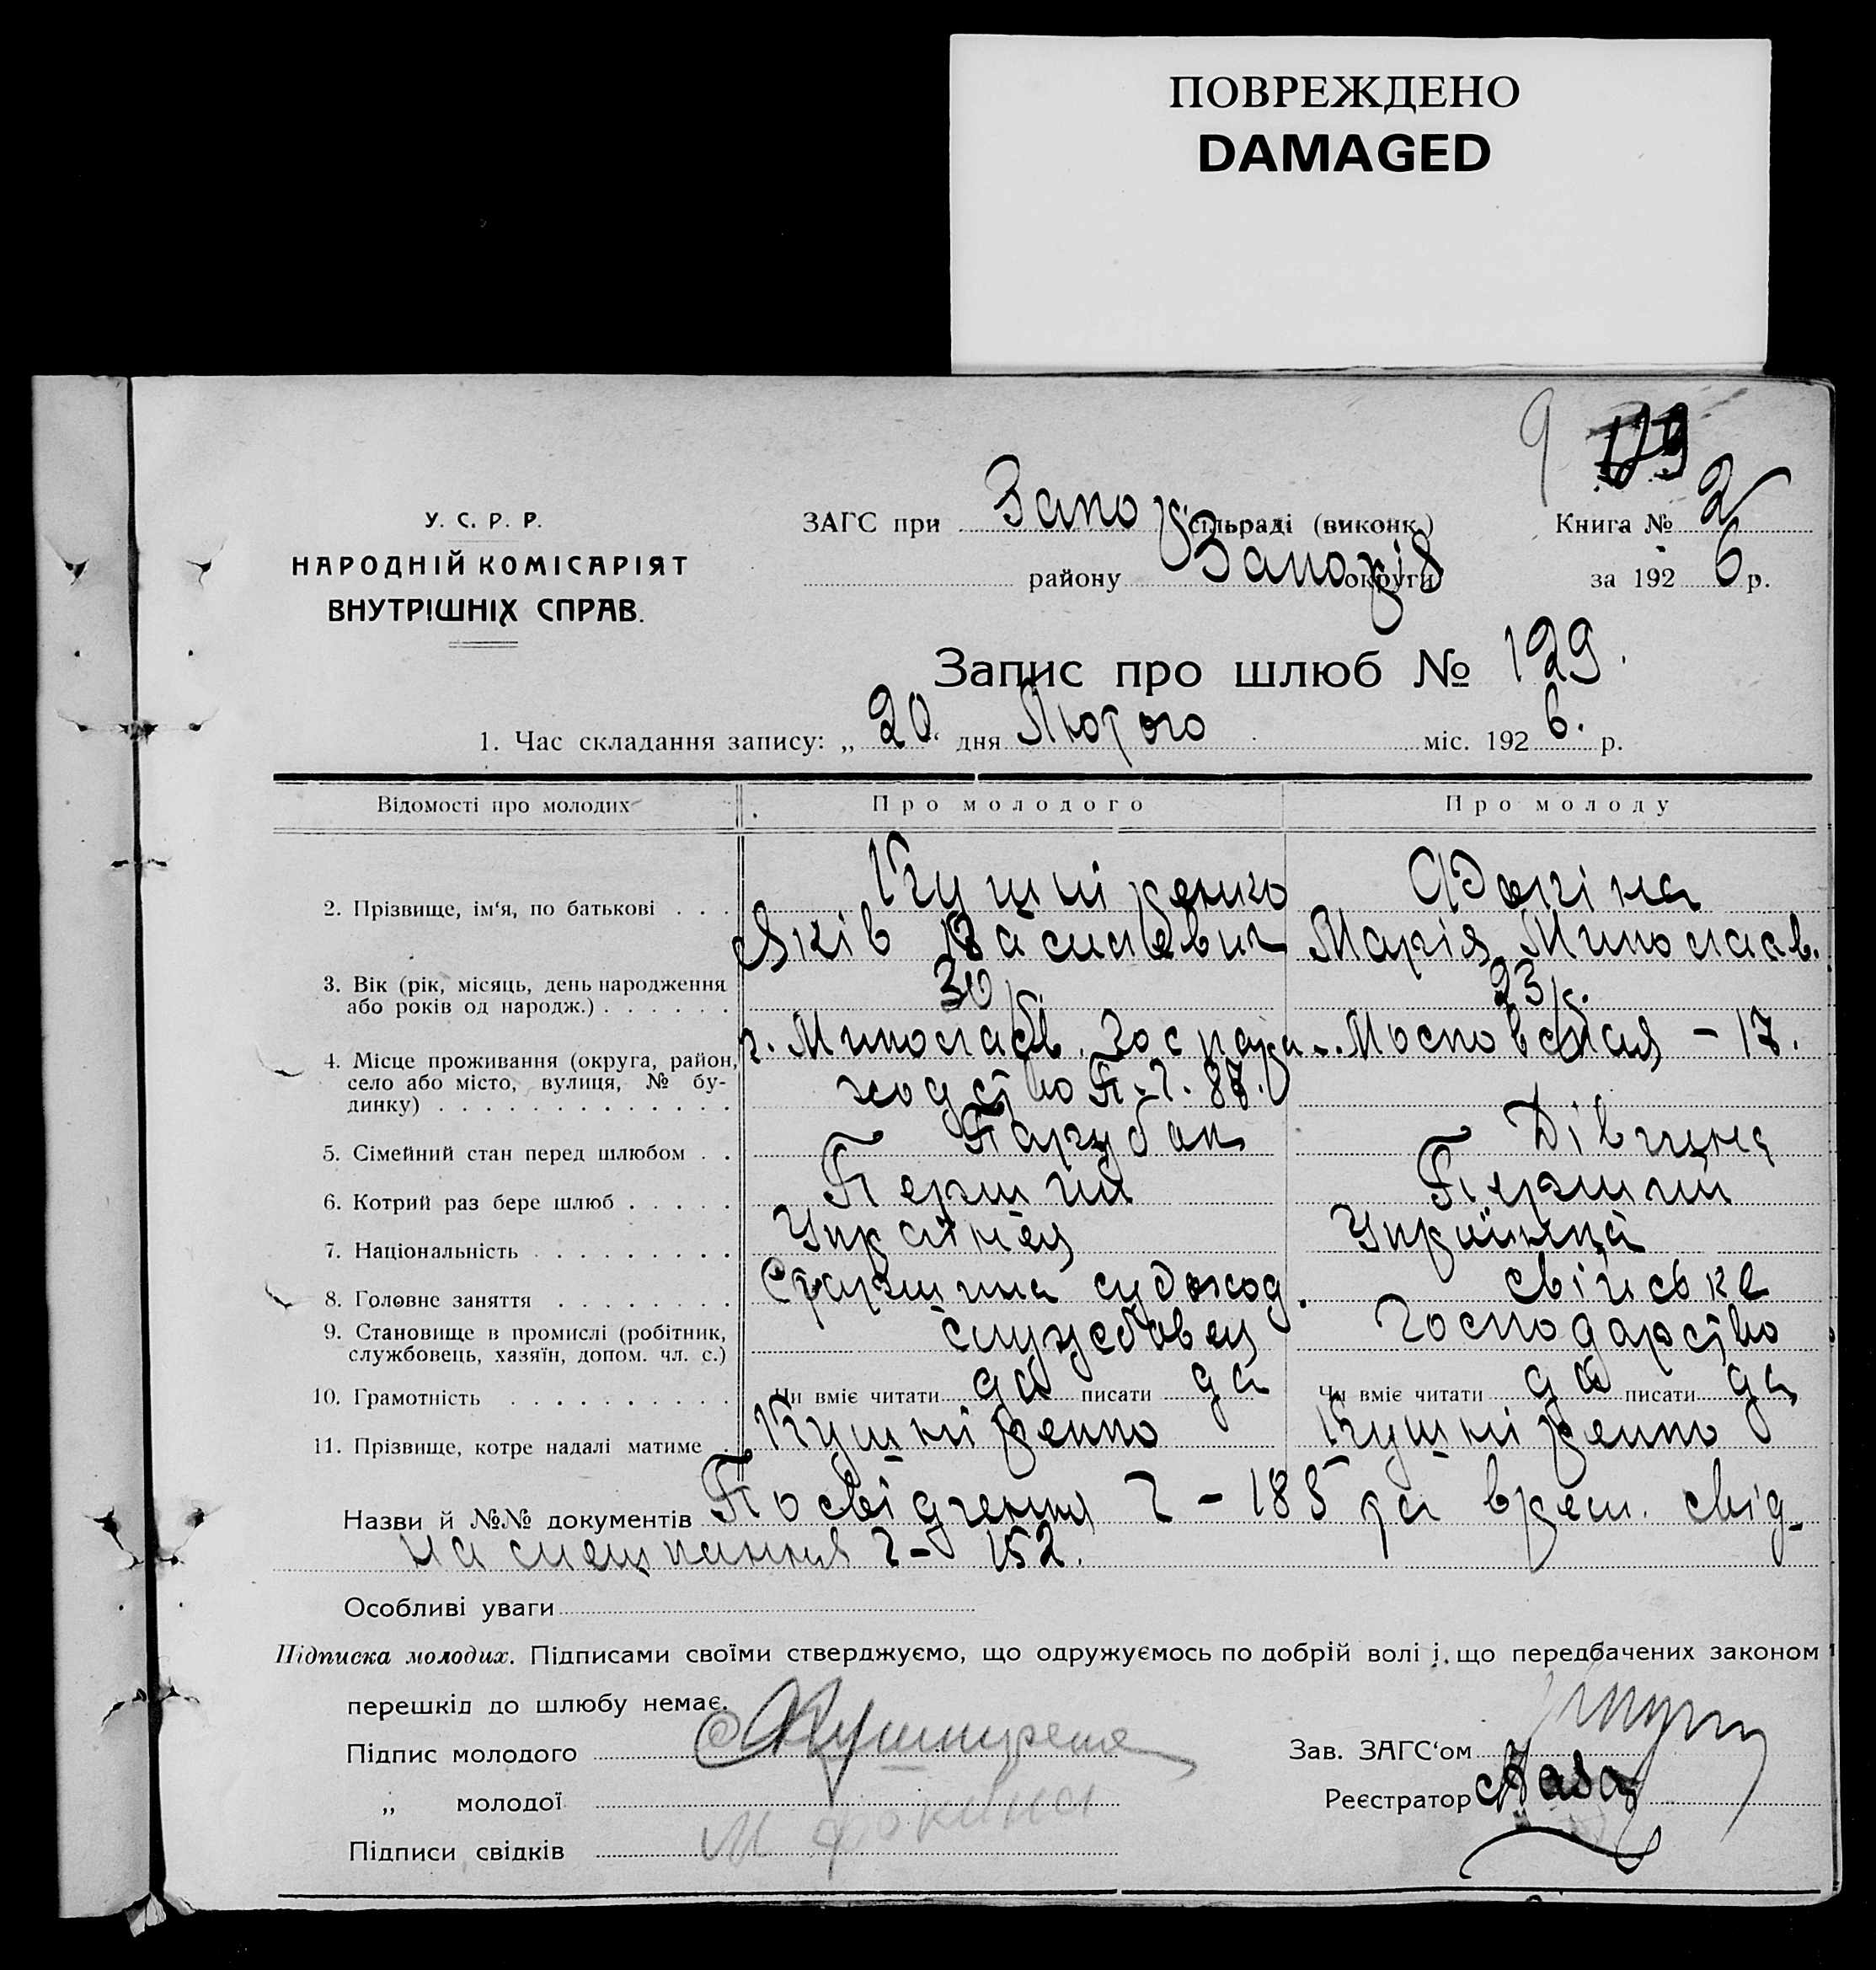 ПОВРЕЖДЕНО
DAMAGED
9 129
У. С. Р. Р.
НАРОДНІЙ КОМІСАРІЯТ
ВНУТРІШНІХ СПРАВ.
ЗАГС при Запор сільраді (виконк.) Книга № 2
району Запоріз округи за 192 6 р.
Запис про шлюб № 129.
1. Час складання запису: „ 20 “ дня Лютого міс. 192 6. р.
Відомості про молодих Про молодого Про молоду
2. Прізвище, ім‘я, по батькові . . . Кушніренко Фокіна
Яків Василевич Марія Миколаєв.
3. Вік (рік, місяць, день народження
або років од народж.) . . . . . . 30 р. 23 р.
4. Місце проживання (округа, район,
село або місто, вулиця, № бу-
динку) . . . . . . . . . . . . . г. Миколаїв. Московская – 17.
ходство
5. Сімейний стан перед шлюбом . . Парубок Дівчина
6. Котрий раз бере шлюб . . . . . Перший Перший
7. Національність . . . . . . . . . Українец Українка
8. Головне заняття . . . . . . . . Старшина судоход. свійське
9. Становище в промислі (робітник,
службовець, хазяїн, допом. чл. с.) службовец господарство
10. Грамотність . . . . . . . . . . Чи вміє читати да писати да Чи вміє читати да писати да
11. Прізвище, котре надалі матиме . Кушніренко Кушніренко
Назви й №№ документів Посвідчення ч – 185 та врем. свід.
на мешкання ч – 152.
Особливі уваги
Підписка молодих. Підписами своїми стверджуємо, що одружуємось по добрій волі і, що передбачених законом
перешкід до шлюбу немає.
Підпис молодого Кушниренко Зав. ЗАГС‘ом
„ молодої М Фокина Реєстратор
Підписи свідків